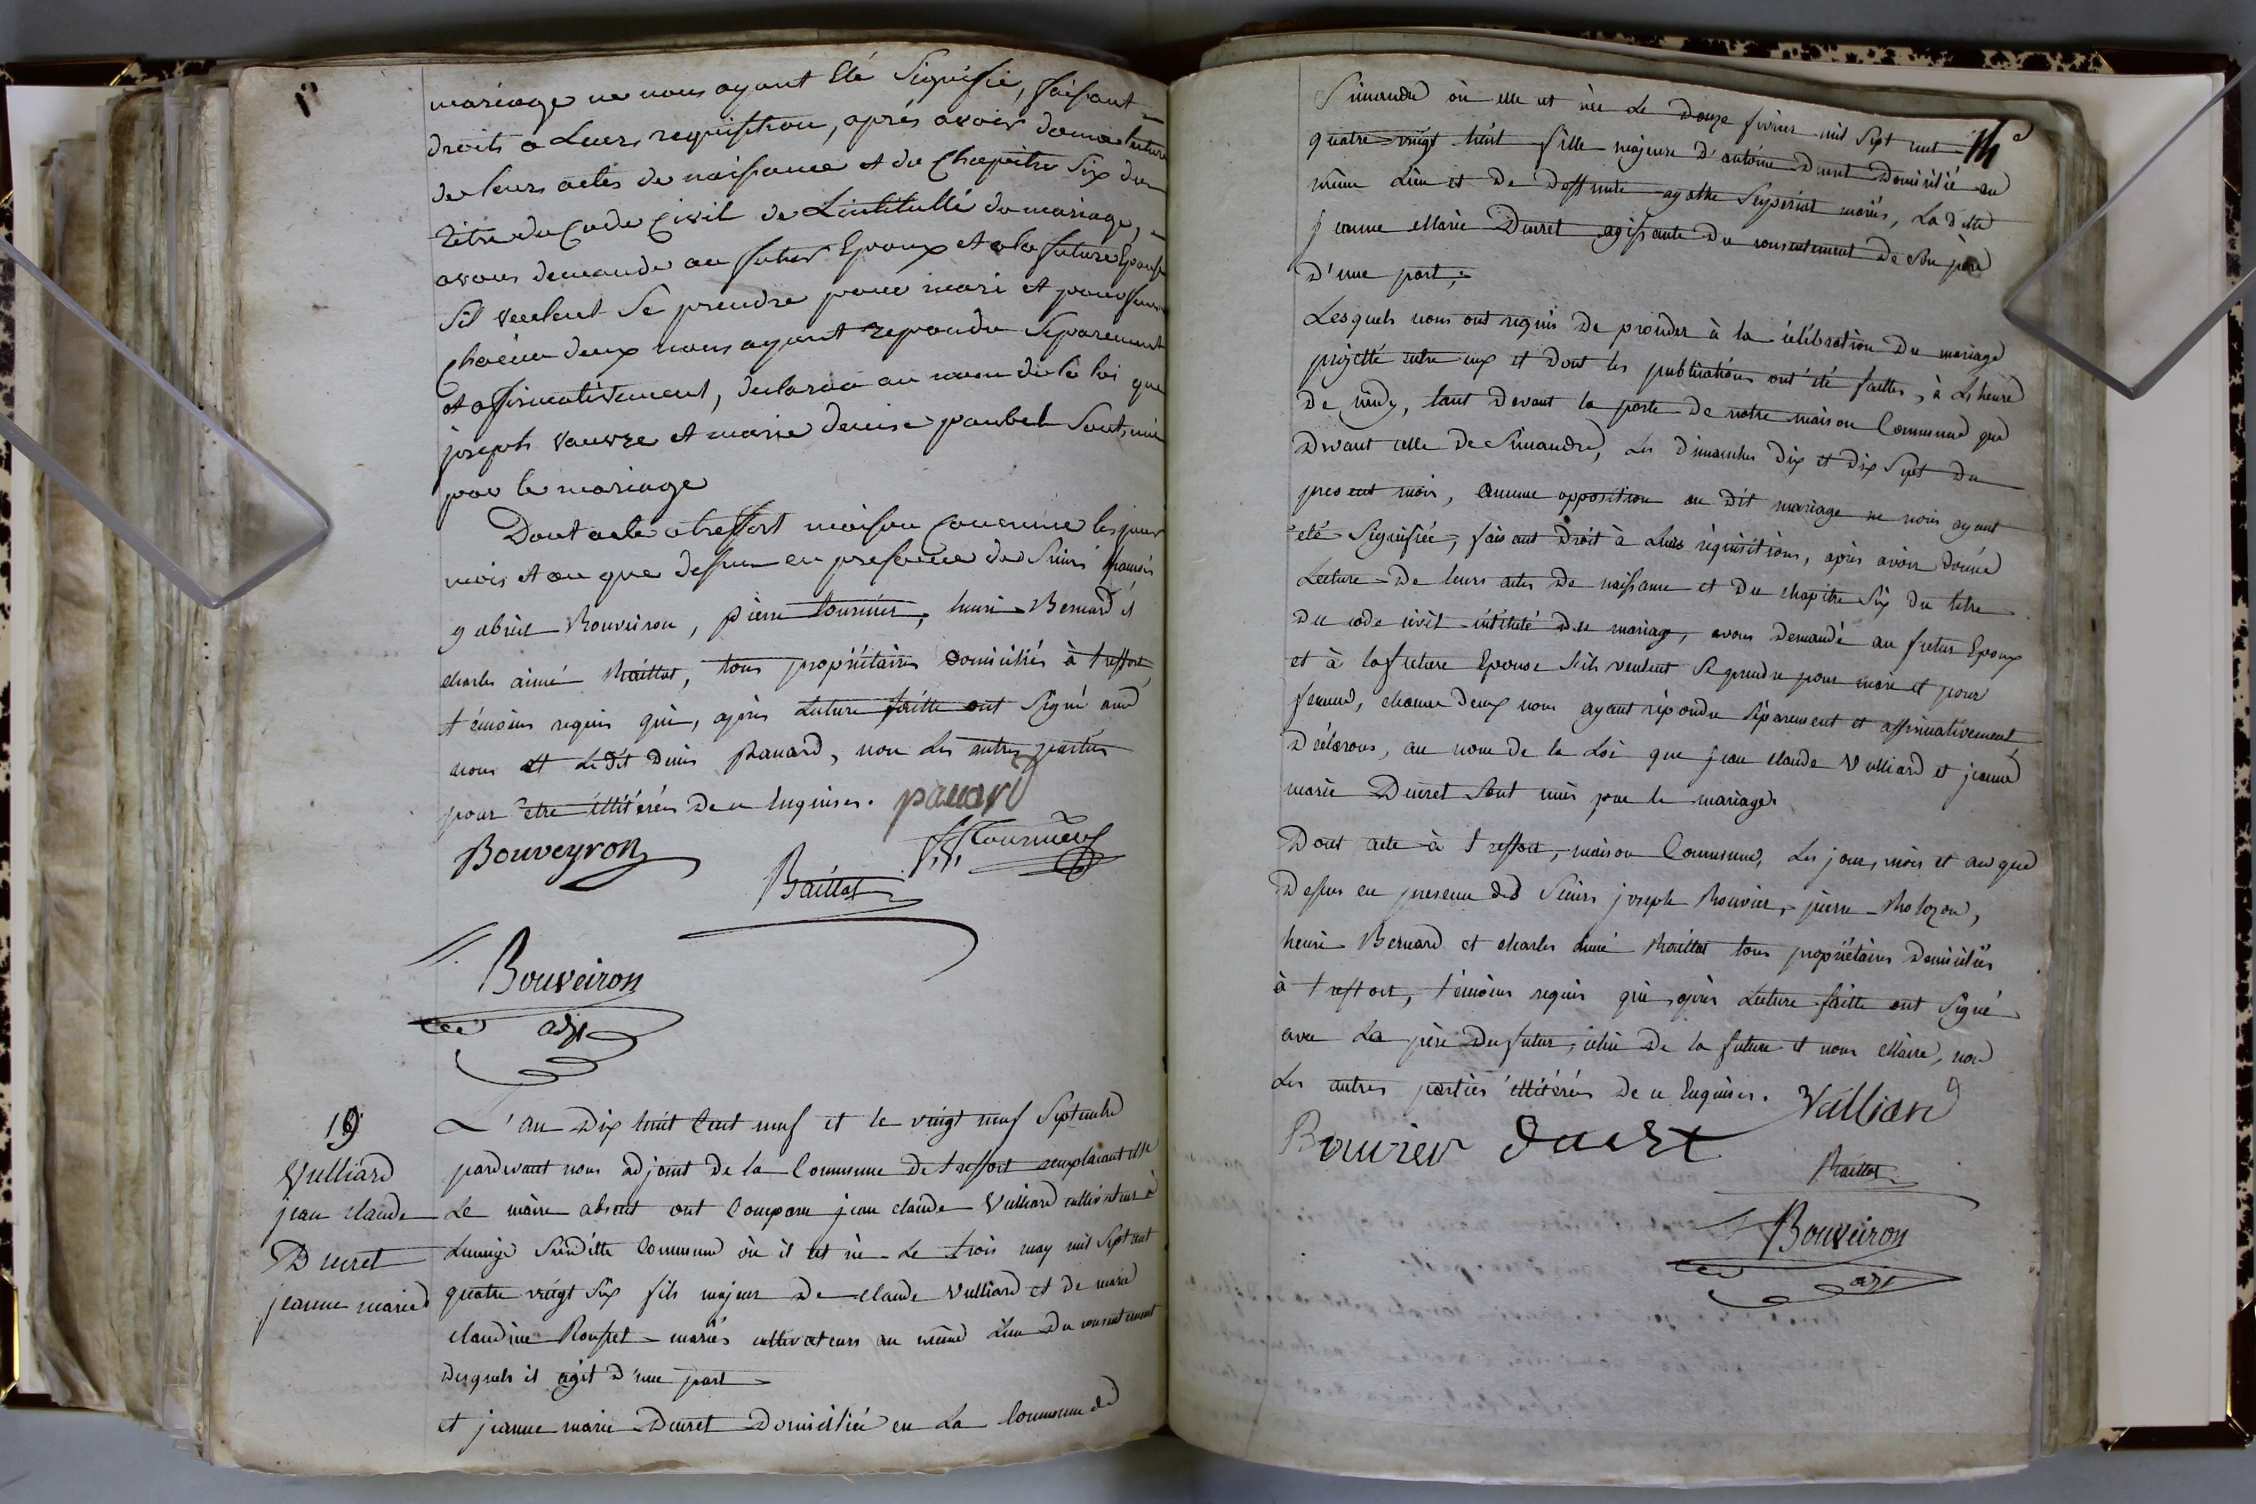 mariage ne nous ayant Eté Signifié, faisant
droits a Leurs requisition, aprés avoir donné lecture
de leurs actes de naissance et du Chapitre Six du
titre du Code Civil de L'intitullé du mariage,
avons demandé au futur Epoux et a la future Epouse
Sil veulent Se prendre pour mari et pour femme
Chacun deux nous ayant repondu Separement
et affirmativement, declarons au nom de la loi que
joseph vauvre et marie denise paubel Sont unis
par le mariage
Dont acte a treffort maison Commune les jour
mois et an que dessus en presence des Srieurs françois
gabriel Bouveiron, pierre tournier, henri Bernard et
charles aimé Baillat, tous propriétaires domiciliés à treffort,
témoins requis qui, après Lecture faitte ont Signé avec
nous et Le dit Denis Panard, non Les autres parties
pour être illitérées de ce Enquises. panard
Bouveyron Tournier
Baillat
Bouveiron
adjt
19
Vulliard
jean claude
Ducret
jeanne marie
L'an Dix huit Cent neuf et le vingt neuf Septembre
pardevant nous adjoint de la Commune de treffort remplaçant
Le maire absent ont Comparu jean claude Vulliard cultivateur à
Lucinge Susditte Commune où il est né Le trois may mil Sept cent
quatre vingt Six fils majeur De claude Vulliard et de marie
claudine Rousset mariés cultivateurs au même Lieu Du consentement
Desquels il agit D'une part
et jeanne marie Ducret Domiciliée en La Commune de
Simandre où elle est née Le Douze fevrier mil Sept cent
quatre-vingt huit fille majeure D'antoine Ducret Domicilié au
même Lieu et De Deffunte agathe mariés, La ditte
jeanne Marie Ducret agissante Du consentement De Son père
D'une part,
Lesquels nous ont requis De proceder à la célébration Du mariage
projetté entre eux et Dont les publications ont été faittes, à L'heure
De midy, tant Devant la porte De notre maison Commune que
Devant celle De Simandre, Les Dimanches Dix et Dix Sept Du
present mois, aucune opposition au Dit mariage ne nous ayant
eté Signifiée, faisant Droit à Leurs réquisitions, après avoir Donné
Lecture De leurs actes De naissance et Du chapitre Six Du titre
Du code civil intitulé Du mariage, avons Demandé au futur Epoux
et à la future Epouse S'ils veulent Se prendre pour mari et pour
femme, chacun Deux nous ayant répondu Séparement et affirmativement
Déclarons, au nom De la Loi que jean claude Vulliard et jeanne
marie Ducret Sont unis par le mariage.
Dont acte à treffort, maison Commune, Les jour, mois et an que
Dessus en presence des Sieurs joseph Bouvier, pierre
henri Bernard et charles aimé Baillat tous propriétaires Domiciliés
à treffort, témoins requis qui après Lecture faitte ont Signé
avec Le père Du futur, celui De la future et nous Maire, non
Les autres parties illitérées De ce Enquises. Vulliard
Bouvier Ducret
Baillat
Bouveiron
adjt